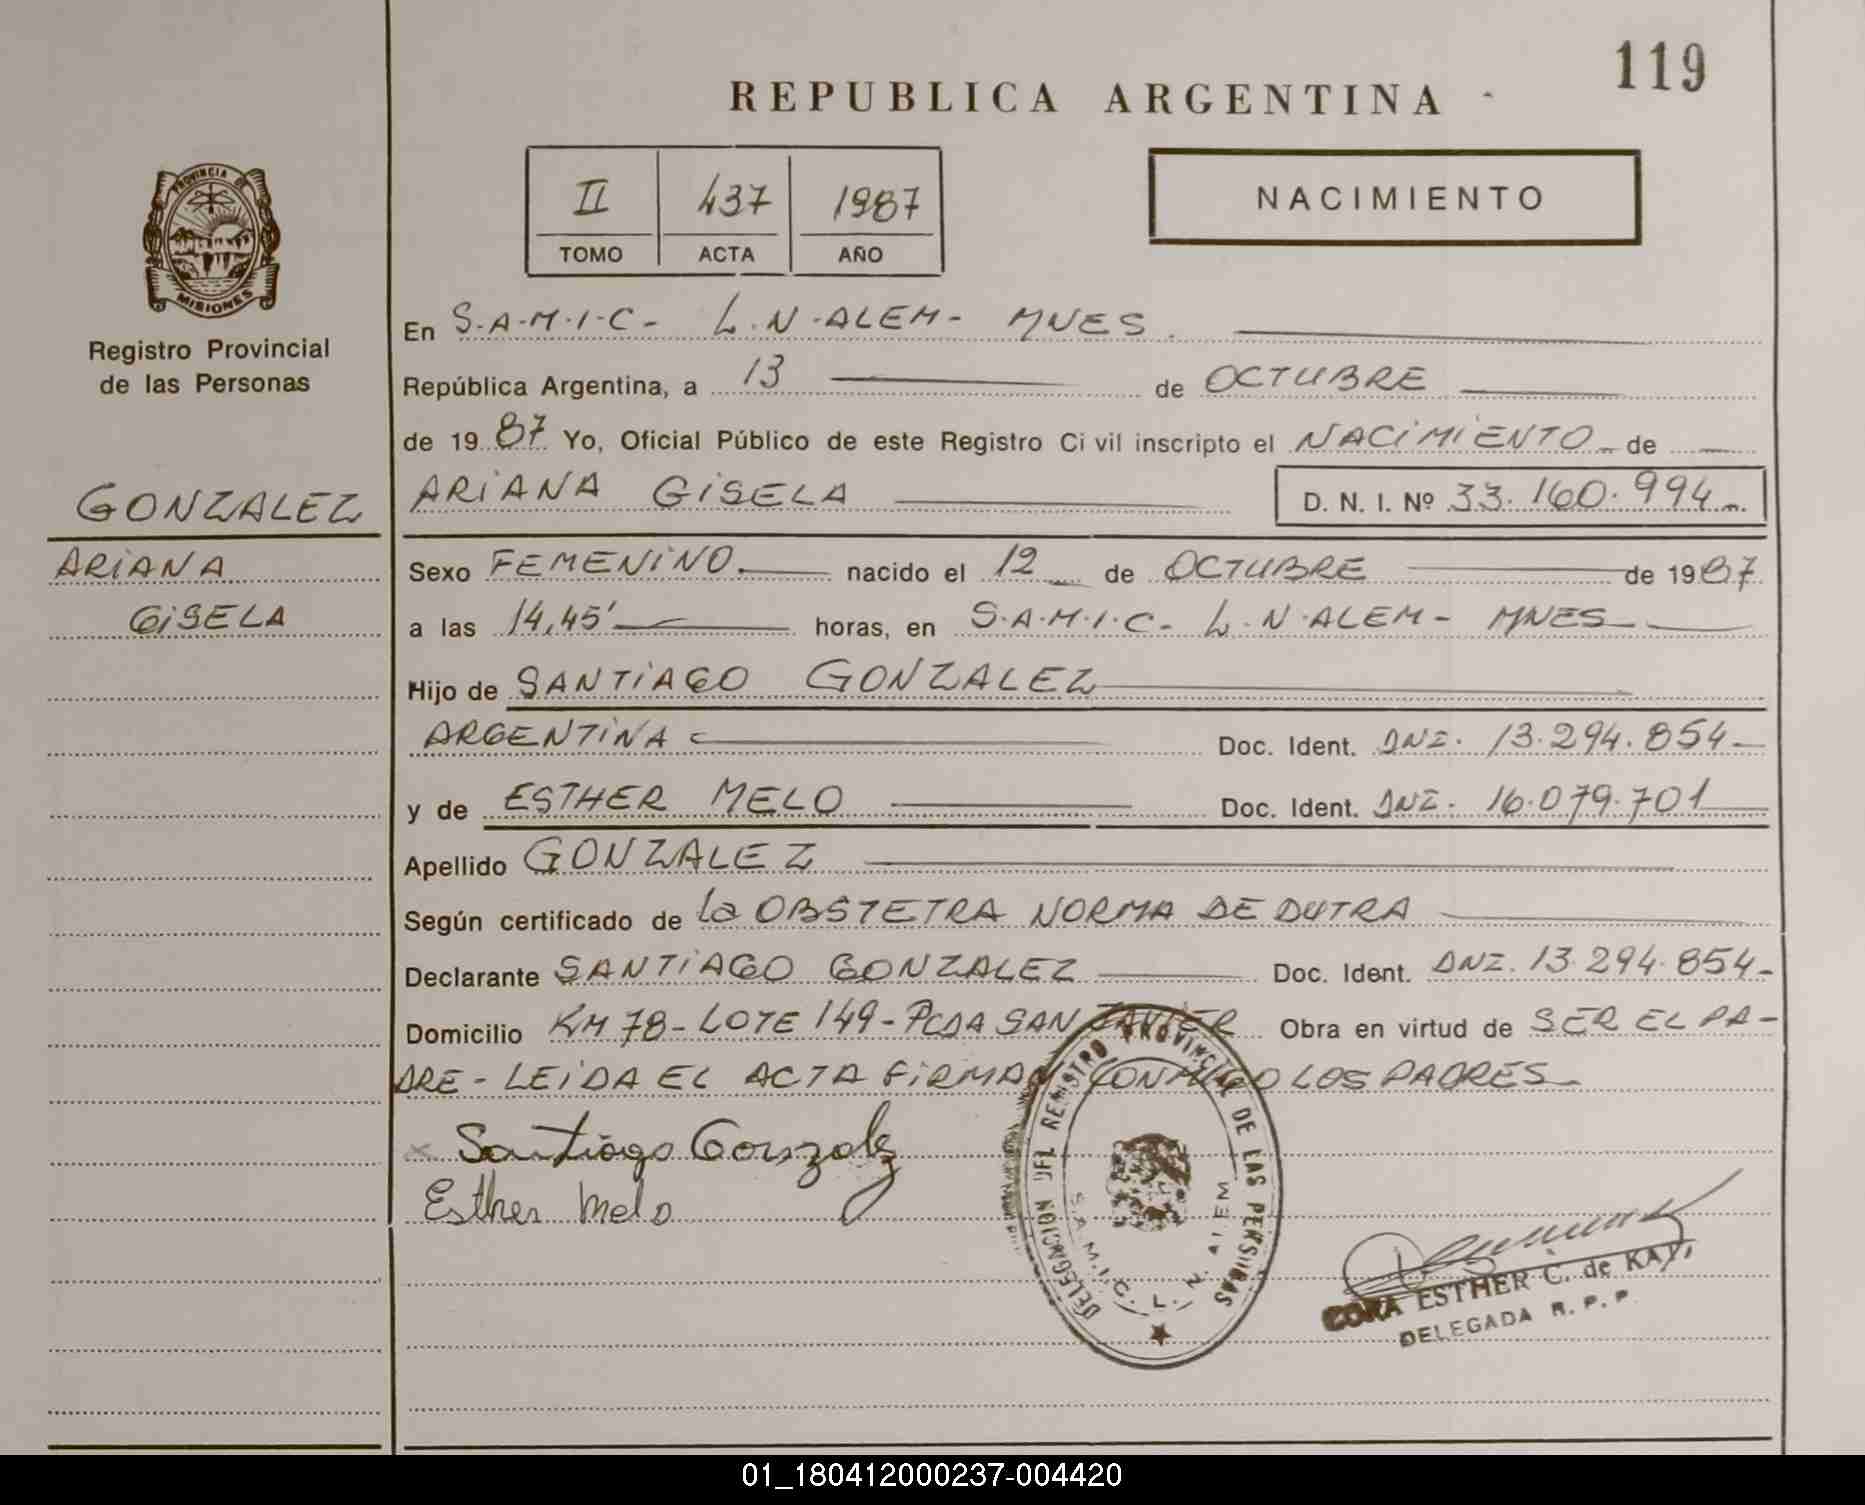 119
REPUBLICA ARGENTINA
II 437 1987
TOMO ACTA AÑO
NACIMIENTO
PROVINCIA DE
MISIONES
Registro Provincial
de las Personas
GONZALEZ
ARIANA
GISELA
En S.A.M.I.C- L.N.ALEM- MNES.
República Argentina, a 13 de OCTUBRE
de 1987 Yo, Oficial Público de este Registro Civil inscripto el NACIMIENTO de
ARIANA GISELA D. N. I. Nº 33.160.994
Sexo FEMENINO. nacido el 12 de OCTUBRE de 1987
a las 14,45' horas, en S.A.M.I.C- L.N.ALEM- MNES
Hijo de SANTIAGO GONZALEZ
ARGENTINA Doc. Ident. DNI. 13.294.854-
y de ESTHER MELO Doc. Ident. DNI. 16.079.701
Apellido GONZALEZ
Según certificado de la OBSTETRA NORMA DE DUTRA
Declarante SANTIAGO GONZALEZ Doc. Ident. DNI. 13.294.854-
Domicilio KM 78-LOTE 149-PCDA SAN JAVIER Obra en virtud de SER EL PA-
DRE-LEIDA EL ACTA FIRMAN CONMIGO LOS PADRES
Santiago Gonzalez
Esther Melo
DELEGACION DEL REGISTRO PROVINCIAL DE LAS PERSONAS
S.A.M.I.C. L. N. ALEM
ESTHER C. de KAY
DELEGADA R. P. P.
01_180412000237-004420